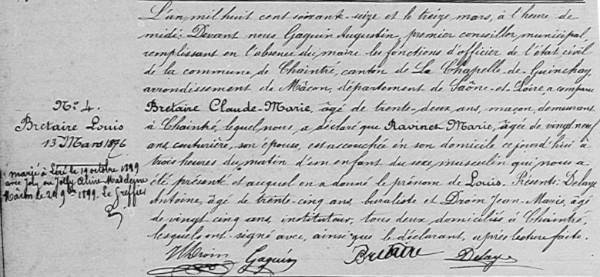 L'an mil huit cent soixante-seize et le treize mars, à l'heure de
midi. Devant nous Gaguin Augustin, premier conseiller municipal,
remplissant en l'absence du maire les fonctions d'officier de l'état civil
de la commune de Chaintré, canton de La Chapelle-de-Guinchay,
arrondissement de Mâcon, département de Saône-et-Loire, a comparu
Bretaire Claude-Marie, âgé de trente-deux ans, maçon, demeurant
à Chaintré, lequel nous a déclaré que Ravinet Marie, âgée de vingt neuf
ans, couturière, son épouse, est accouchée en son domicile ce jourd'hui à
trois heures du matin d'un enfant du sexe masculin qui nous a
été présenté et auquel on a donné le prénom de Louis. Présents: Delaye
Antoine, âgé de trente-cinq ans, buraliste et Droin Jean-Marie, âgé
de vingt cinq ans, instituteur, tous deux domiciliés à Chaintré,
lesquels ont signé avec, ainsi que le déclarant, après lecture faite.
JMDroin Gaguin Bretaire Delaye
N° 4.
Bretaire Louis
13 Mars 1876
marié à le 19 octobre 1899
avec Joly ou Jolly Aline
Mâcon le 1899. Le Greffier